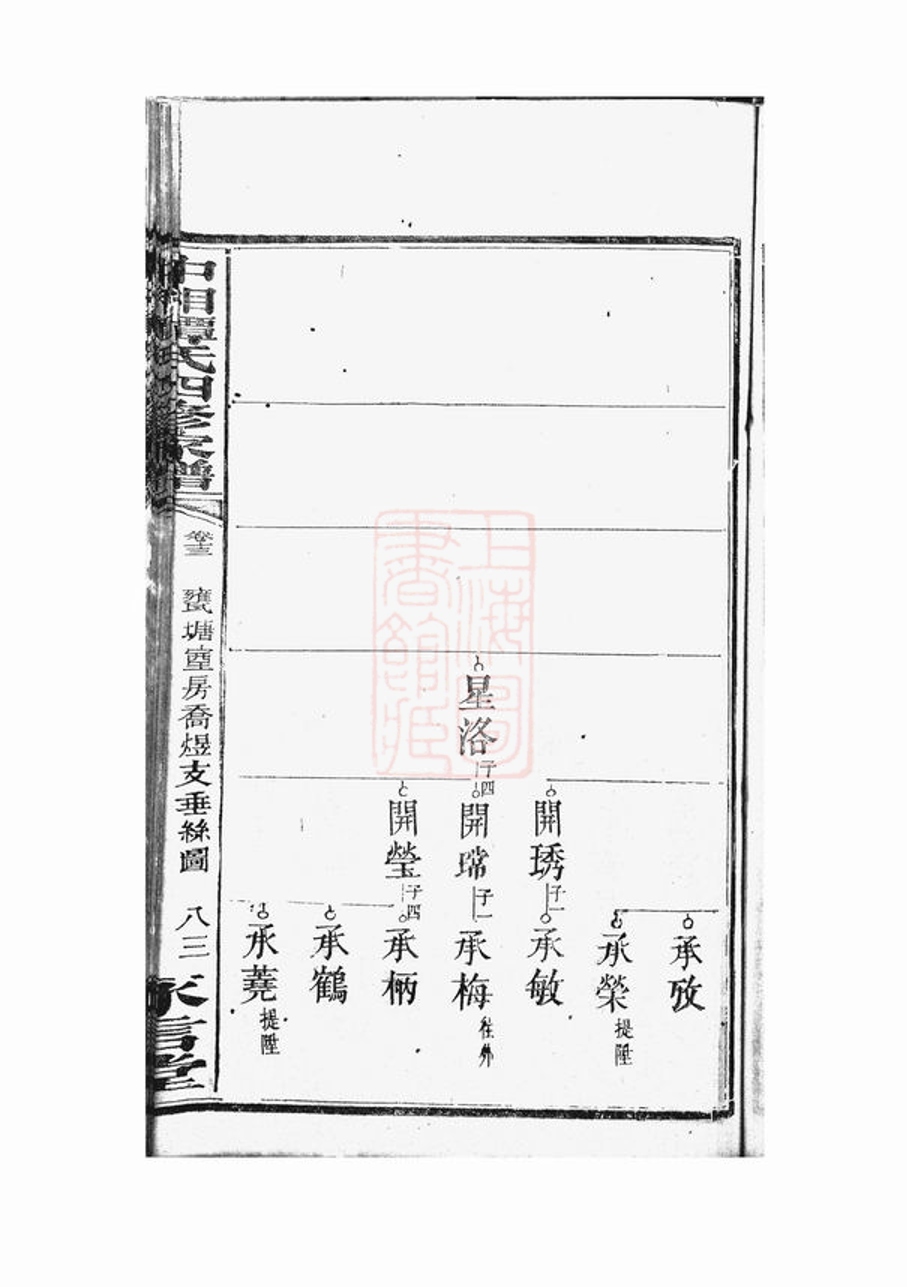 中湘譚氏四修家譜
卷十三
甕塘壹房喬煜支垂絲圖
八三
永言堂
星洛
子四
開琇
子一
開瑺
子一
開瑩
子四
承攷
承榮
提陞
承敏
承梅
往外
承柄
承鶴
承蕘
提陞
上海圖書館藏